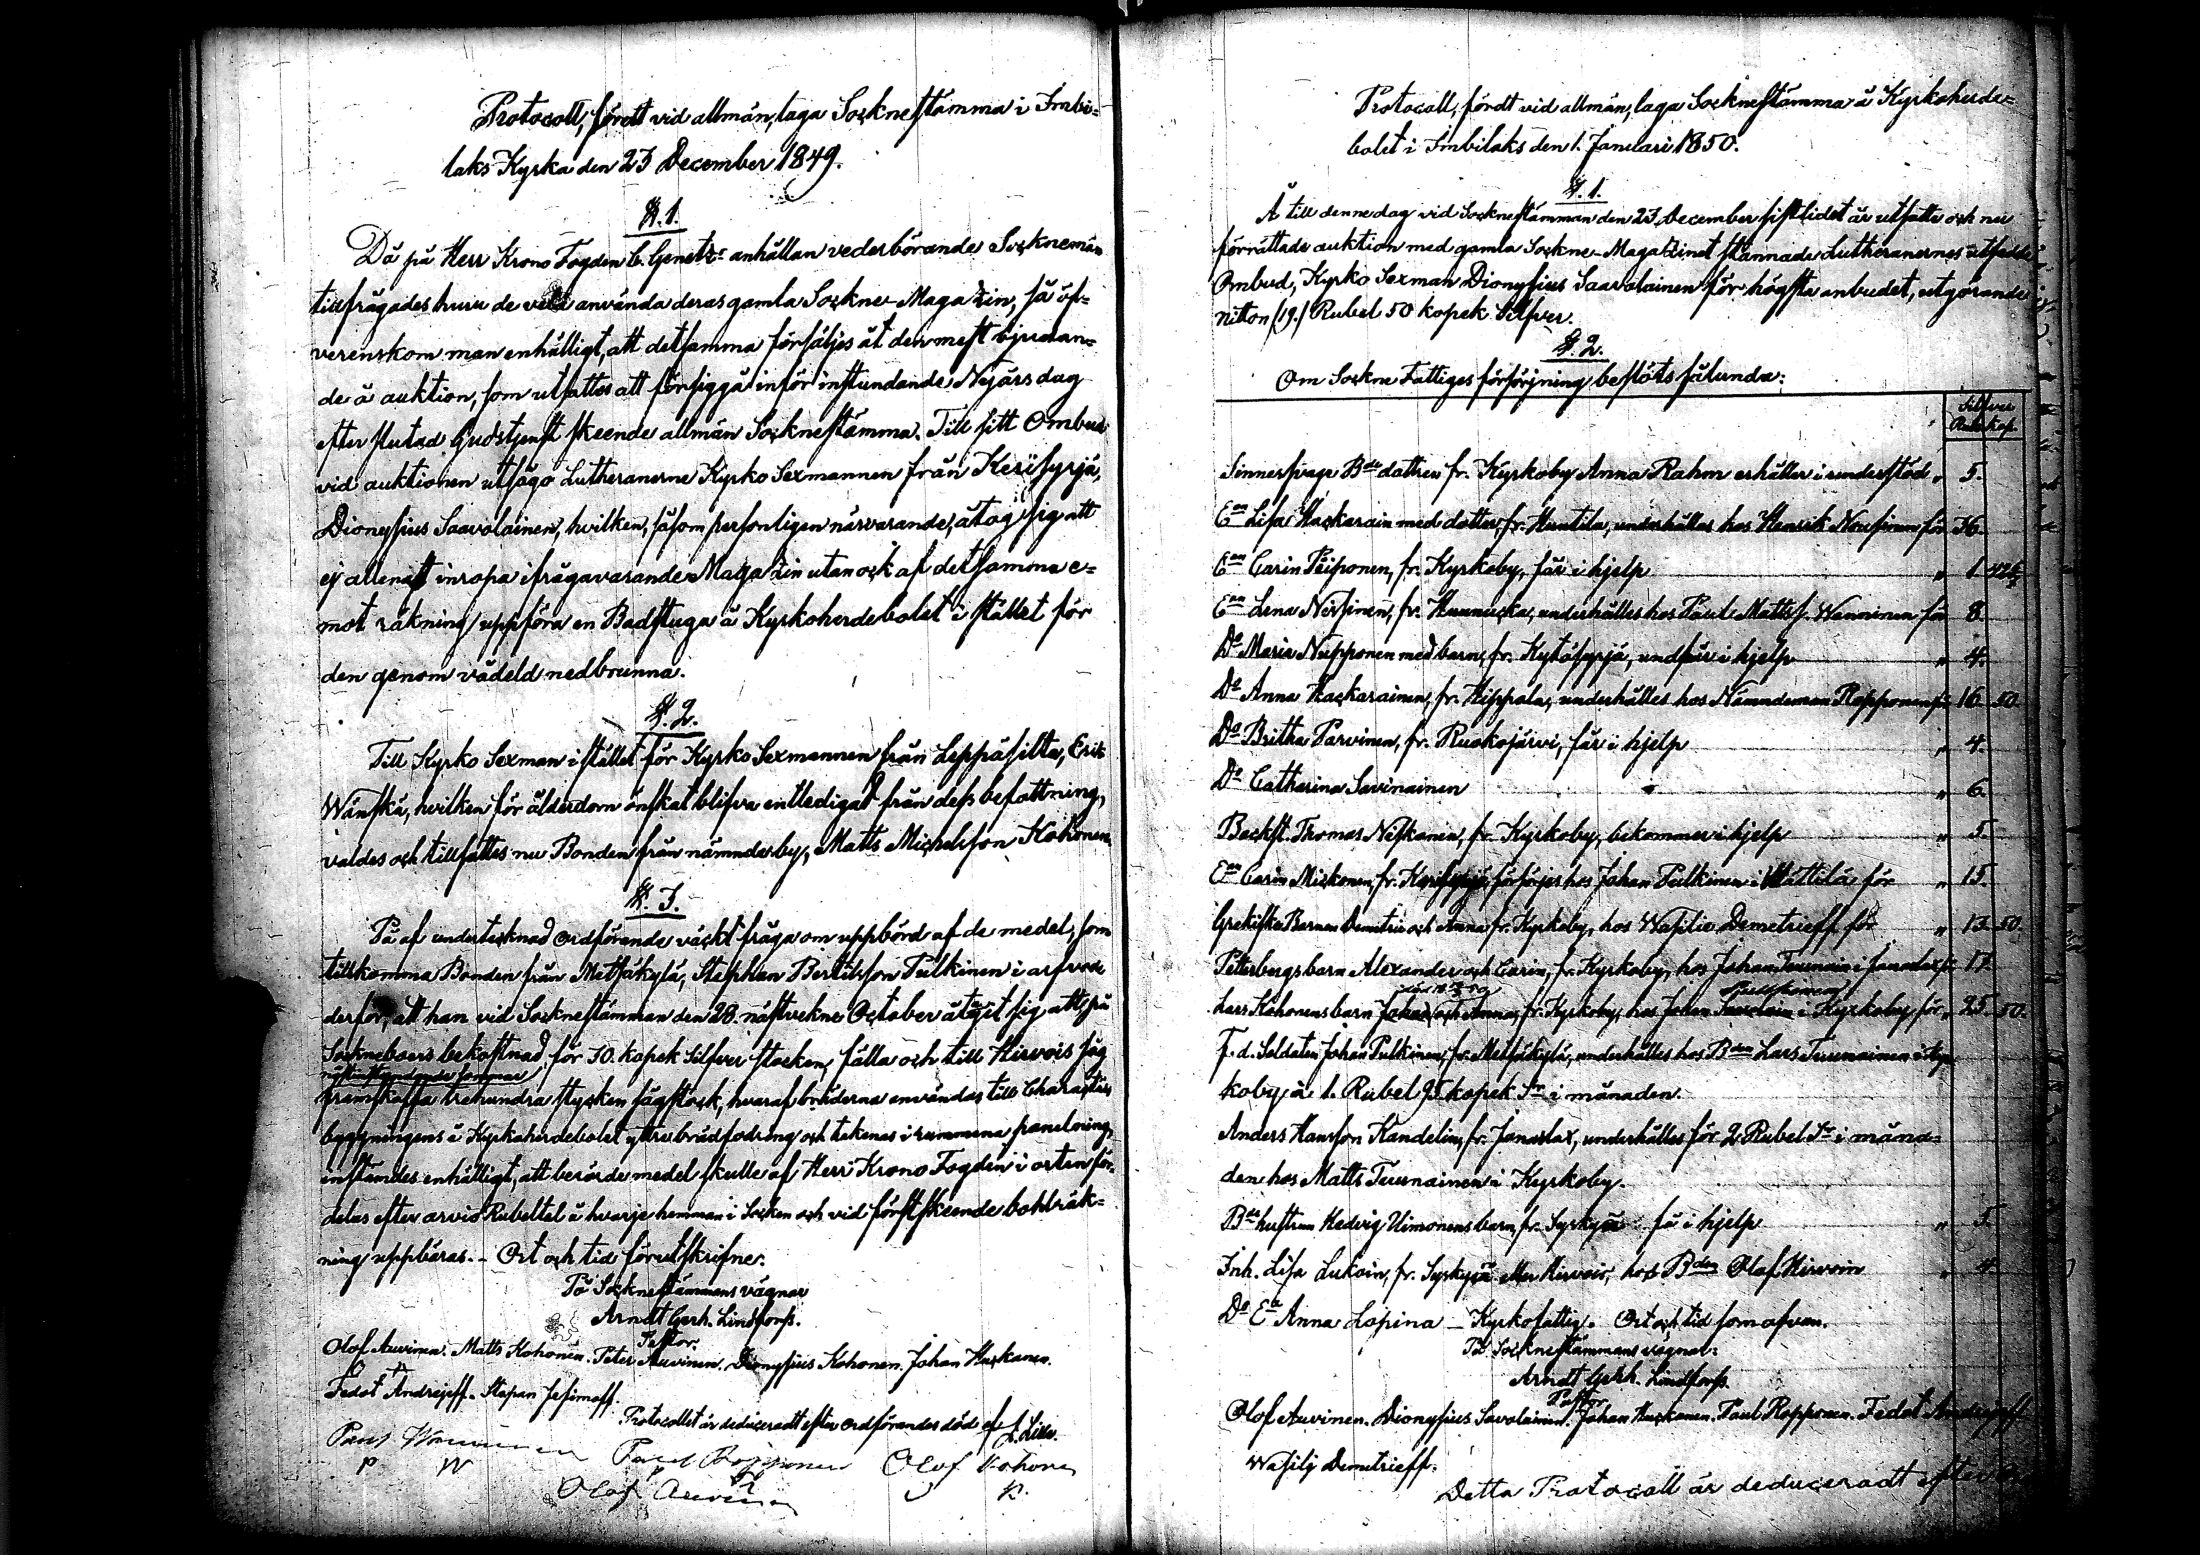 Protocoll, fördt vid allmän, laga Sockneſtämma i Imbi-
laks Kyrka den 23 December 1849.
§. 1.
Då på Herr Krono Fogden C. Genetz's anhållan vederbörande Socknemän
tillfrågades huru de vela använda deras gamla Sockne-Magazin, så öf-
verenskom man enhälligt, att detſamma förſäljes åt den meſt bjudan-
de å auktion, ſom utſattes att förſiggå inför inſtundande Nyårsdag
efter ſlutad Gudstjenſt ſkeende allmän Sockneſtämma. Till ſitt Ombud
vid auktionen utſågo Lutheranerne Kyrko Sexmannen från Keriſyrjä,
Dionyſius Saavalainen, hvilken, ſåſom perſonligen närvarande, åtog ſig att
ej allenaſt inropa ifrågavarande Magazin utan ock af detſamma e-
mot räkning uppföra en Badſtuga å Kyrkoherdebolet i ſtället för
den genom vådeld nedbrunna.
§. 2.
Till Kyrko Sexman i ſtället för Kyrko Sexmannen från Leppäſilta, Erik
Wänſkä, hvilken för ålderdom önſkat blifva entledigad från deſs befattning,
valdes och tillſattes nu Bonden från nämnde by, Matts Michelsſon Kohonen.
§. 3.
På af undertecknad Ordförande väckt fråga om uppbörd af de medel, ſom
tillkomma Bonden från Metſäkylä, Stephan Bertilsſon Pulkinen i arfvode
derför, att han vid Sockneſtämman den 28. näſtvekne October åtagit ſig att på
Sockneboers bekoſtnad för 30. kopek Silfver ſtocken, fälla och till Hirvois ſåg
näſt inſtundande ſommar
framſkaffa trehundra ſtycken ſågſtock, hvaraf bräderna användas till Charactirs
byggningens å Kyrkoherdebolet yttre brädfodring och takens i rummena panelning,
inſtämdes enhälligt, att berörde medel ſkulle af Herr Krono Fogden i orten för-
delas efter arvid Rubeltel å hvarje hemman i Socken och vid förſt ſkeende bohlräk-
ning uppbäras. - Ort och tid förutſkrifne.
På Sockneſtämmans vägnar
Arndt Gerh. Lindforſs.
Paſtor.
Olof Auvinen. Matts Kohonen. Peter Auvinen. Dionyſius Kohonen. Johan Huſkanen.
Fedot Andrejeff. Stepan Jefimoff.
Protocollet är deduceradt efter Ordförandes död af
Paul Wanninen Paul Ropponen Olof Kohonen
P W
Olof Auvinen
Protocoll, fördt vid allmän, laga Sockneſtämma å Kyrkoherde-
bolet i Imbilaks den 1. Januari 1850.
§. 1.
Å till denne dag vid Sockneſtämman den 23 December ſiſtlidet år utſatte och nu
förrättade auktion med gamla Sockne-Magazinet ſtannade Lutheranernes utſedde
Ombud, Kyrko Sexman Dionyſius Saavalainen för högſta anbudet, utgörande
nitton (19.) Rubel 50 kopek Silfver.
§. 2.
Om Sockne Fattiges förſörjning beſlöts ſålunda:
Silfver
Rub. kop.
Sinnesſvage Bde dottren fr. Kyrkoby Anna Rahm erhåller i underſtöd " 5.
Ean Liſa Hackarain med dotter, fr. Huntila, underhålles hos Henrik Nouſinen för 36.
Ean Carin Peiponen, fr. Kyrkoby, får i hjelp " 1. 42
Ean Lena Nouſinen, fr. Hunucka, underhålles hos Paul Mattsſ. Wanninen för 8.
Do Maria Nupponen med barn, fr. Kytöſyrjä, undfår i hjelp " 4.
Do Anna Hackarainen, fr. Hippola, underhålles hos Nämndeman Ropponen för 16. 50.
Do Britha Parvinen, fr. Ruokojärvi, får i hjelp " 4.
Do Catharina Savinainen " " 6.
Backſt. Thomas Niſkanen, fr. Kyrkoby, bekommer i hjelp " 5.
Ean Carin Mickonen, fr. förſörjes hos Johan Pulkinen i Mättilä för " 15.
Grekiſka Barnen Demitri och Anna fr. Kyrkoby, hos Waſilie Demetrieff för " 13. 50.
Petersburgs barn Alexander och Carin, fr. Kyrkoby, hos Johan Tuunain i Janaslax för 17.
Lars Kohonens barn Johan och Anna, fr. Kyrkoby, hos Johan i Kyrkoby för " 25. 50.
F. d. Soldaten Johan Pulkinen, fr. Metſäkylä, underhålles hos Bden Lars Tuunainen i Kyr-
koby à 1. Rubel 95 kopek Sr i månaden.
Anders Hansſon Kandelin, fr. Janaslax, underhålles för 2 Rubel Sr i måna-
den hos Matts Tuunainen i Kyrkoby.
Bde huſtrun Hedvig Uimonens barn, fr. Syſkyjä få i hjelp " 5.
Inh. Liſa Lukoin, fr. Syſkyjä eller Hirvois, hos Bden Olof Hirvoin " 4.
Do Ea Anna Lopina - Kyrkofattig. Ort och tid ſom ofvan.
På Sockneſtämmans vägnar:
Arndt Gerh. Lindforſs.
Paſtor.
Olof Auvinen. Dionyſius Savolainen. Johan Huſkanen. Paul Ropponen. Fedot Andrejeff
Waſilij Demetrieff.
Detta Protocoll är deduceradt efter